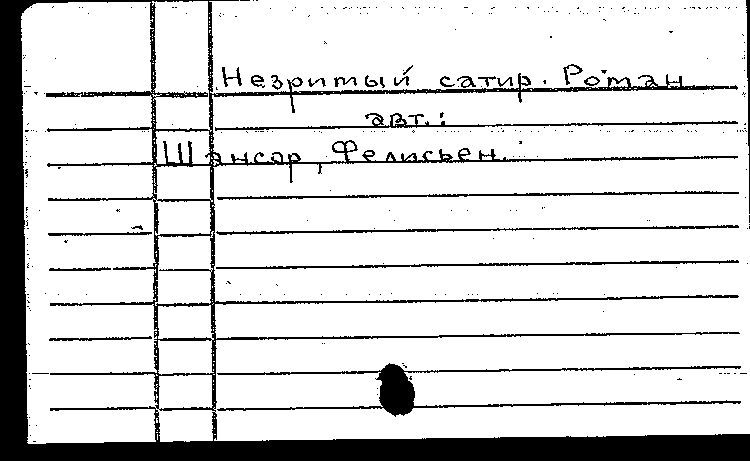 Незритый сатир. Роман
авт.:
Шансор, Фелисьен.